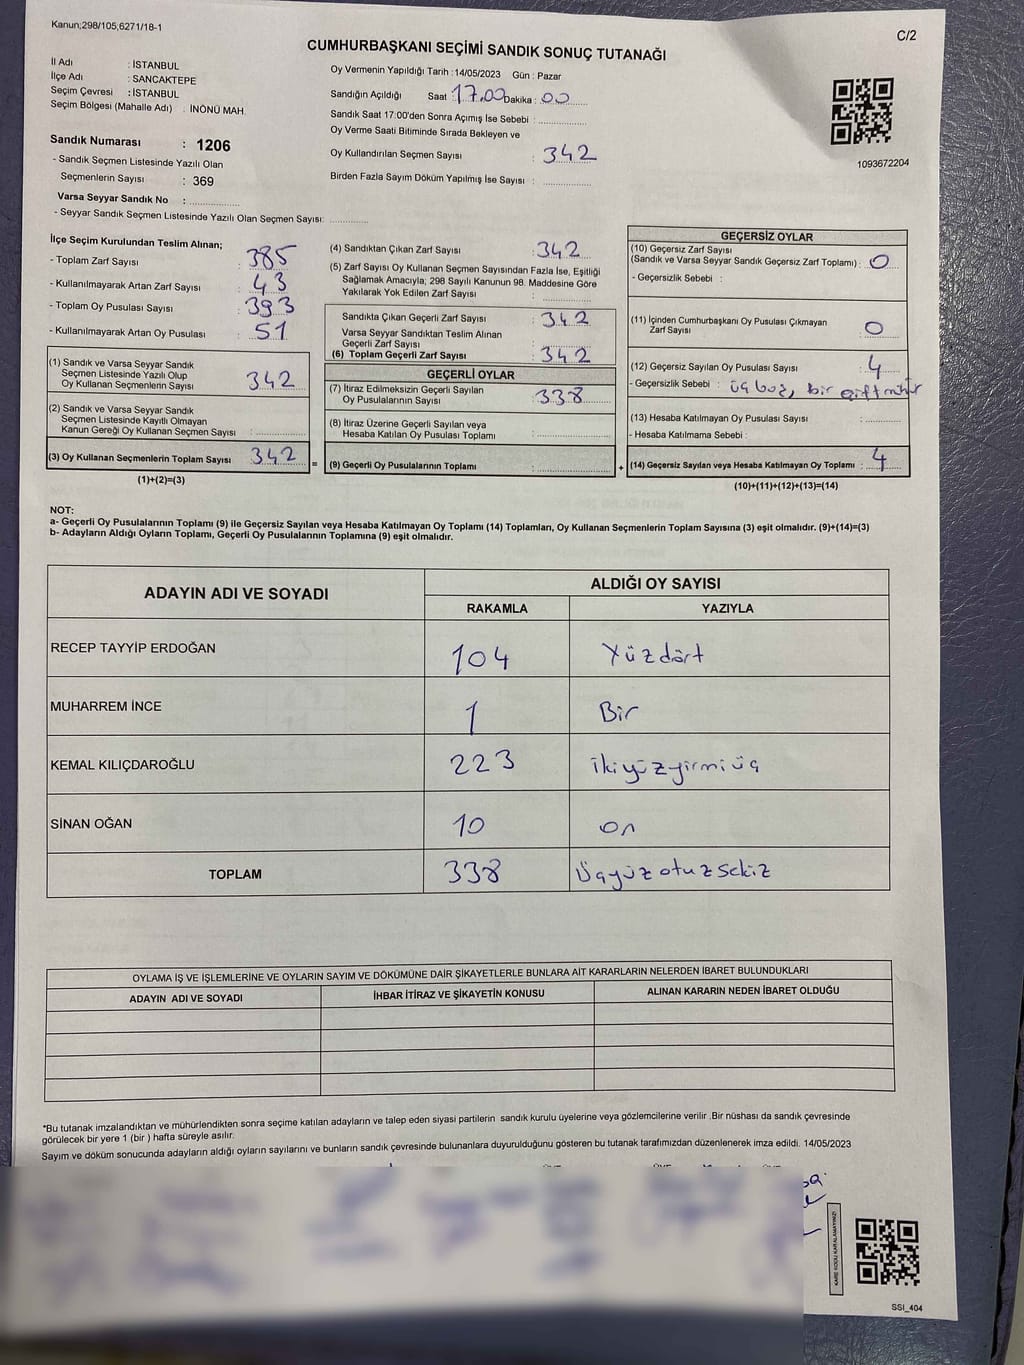 Kanun;298/105,6271/18-1
C/2
CUMHURBAŞKANI SEÇİMİ SANDIK SONUÇ TUTANAĞI
İl Adı : İSTANBUL
İlçe Adı : SANCAKTEPE
Seçim Çevresi : İSTANBUL
Seçim Bölgesi (Mahalle Adı) : İNÖNÜ MAH.
Oy Vermenin Yapıldığı Tarih : 14/05/2023 Gün : Pazar
Sandığın Açıldığı Saat : 17.00 Dakika : 00
Sandık Saat 17:00'den Sonra Açımış İse Sebebi :
Oy Verme Saati Bitiminde Sırada Bekleyen ve
Oy Kullandırılan Seçmen Sayısı : 342
Birden Fazla Sayım Döküm Yapılmış İse Sayısı :
1093672204
Sandık Numarası : 1206
- Sandık Seçmen Listesinde Yazılı Olan
Seçmenlerin Sayısı : 369
Varsa Seyyar Sandık No :
- Seyyar Sandık Seçmen Listesinde Yazılı Olan Seçmen Sayısı:
İlçe Seçim Kurulundan Teslim Alınan;
- Toplam Zarf Sayısı : 385
- Kullanılmayarak Artan Zarf Sayısı : 43
- Toplam Oy Pusulası Sayısı : 393
- Kullanılmayarak Artan Oy Pusulası : 51
(1) Sandık ve Varsa Seyyar Sandık
Seçmen Listesinde Yazılı Olup
Oy Kullanan Seçmenlerin Sayısı : 342
(2) Sandık ve Varsa Seyyar Sandık
Seçmen Listesinde Kayıtlı Olmayan
Kanun Gereği Oy Kullanan Seçmen Sayısı :
(3) Oy Kullanan Seçmenlerin Toplam Sayısı : 342
(1)+(2)=(3)
=
(4) Sandıktan Çıkan Zarf Sayısı : 342
(5) Zarf Sayısı Oy Kullanan Seçmen Sayısından Fazla İse, Eşitliği
Sağlamak Amacıyla; 298 Sayılı Kanunun 98. Maddesine Göre
Yakılarak Yok Edilen Zarf Sayısı :
Sandıkta Çıkan Geçerli Zarf Sayısı : 342
Varsa Seyyar Sandıktan Teslim Alınan
Geçerli Zarf Sayısı :
(6) Toplam Geçerli Zarf Sayısı : 342
GEÇERLİ OYLAR
(7) İtiraz Edilmeksizin Geçerli Sayılan
Oy Pusulalarının Sayısı : 338
(8) İtiraz Üzerine Geçerli Sayılan veya
Hesaba Katılan Oy Pusulası Toplamı :
(9) Geçerli Oy Pusulalarının Toplamı :
+
GEÇERSİZ OYLAR
(10) Geçersiz Zarf Sayısı
(Sandık ve Varsa Seyyar Sandık Geçersiz Zarf Toplamı) : 0
- Geçersizlik Sebebi :
(11) İçinden Cumhurbaşkanı Oy Pusulası Çıkmayan
Zarf Sayısı : 0
(12) Geçersiz Sayılan Oy Pusulası Sayısı : 4
- Geçersizlik Sebebi : üç boş, bir çift mühür
(13) Hesaba Katılmayan Oy Pusulası Sayısı :
- Hesaba Katılmama Sebebi :
(14) Geçersiz Sayılan veya Hesaba Katılmayan Oy Toplamı : 4
(10)+(11)+(12)+(13)=(14)
NOT:
a- Geçerli Oy Pusulalarının Toplamı (9) ile Geçersiz Sayılan veya Hesaba Katılmayan Oy Toplamı (14) Toplamları, Oy Kullanan Seçmenlerin Toplam Sayısına (3) eşit olmalıdır. (9)+(14)=(3)
b- Adayların Aldığı Oyların Toplamı, Geçerli Oy Pusulalarının Toplamına (9) eşit olmalıdır.
ADAYIN ADI VE SOYADI ALDIĞI OY SAYISI
RAKAMLA YAZIYLA
RECEP TAYYİP ERDOĞAN 104 Yüzdört
MUHARREM İNCE 1 Bir
KEMAL KILIÇDAROĞLU 223 ikiyüzyirmiüç
SİNAN OĞAN 10 on
TOPLAM 338 Üçyüzotuzsekiz
OYLAMA İŞ VE İŞLEMLERİNE VE OYLARIN SAYIM VE DÖKÜMÜNE DAİR ŞİKAYETLERLE BUNLARA AİT KARARLARIN NELERDEN İBARET BULUNDUKLARI
ADAYIN ADI VE SOYADI İHBAR İTİRAZ VE ŞİKAYETİN KONUSU ALINAN KARARIN NEDEN İBARET OLDUĞU
*Bu tutanak imzalandıktan ve mühürlendikten sonra seçime katılan adayların ve talep eden siyasi partilerin sandık kurulu üyelerine veya gözlemcilerine verilir .Bir nüshası da sandık çevresinde
görülecek bir yere 1 (bir ) hafta süreyle asılır.
Sayım ve döküm sonucunda adayların aldığı oyların sayılarını ve bunların sandık çevresinde bulunanlara duyurulduğunu gösteren bu tutanak tarafımızdan düzenlenerek imza edildi. 14/05/2023
KARE KODU KARALAMAYINIZ!
SSI_404